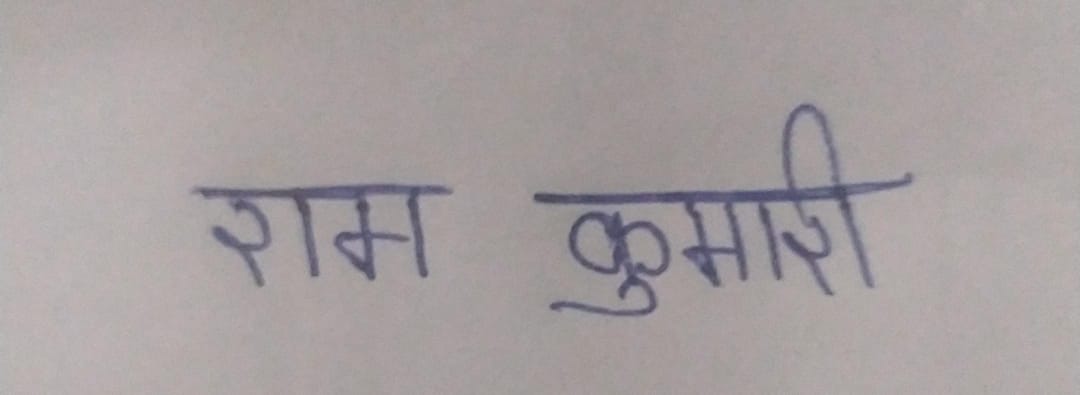 राम कुमारी